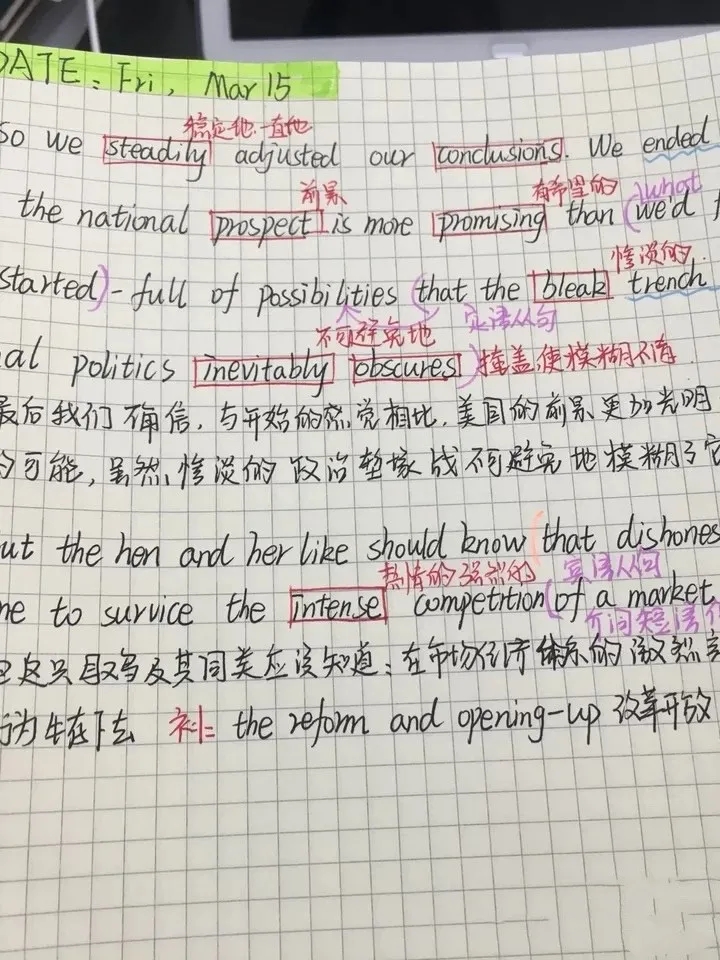 DATE: Fri, Mar 15
稳定地.一直地
so we steadily adjusted our conclusions. We ended
前景 有希望的 what
the national prospect is more promising than (we'd f
惨淡的
started) - full of possibilities (that the bleak trench
不可避免地 定语从句
al politics inevitably obscures) 掩盖,使模糊不清
最后我们确信,与开始的 相比,美国的前景更加光明
可能,虽然,惨淡的政治堑壕战不可避免地模糊了它
ut the hen and her like should know (that dishones
热情的 强烈的 宾语从句
me to survice the intense competition (of a market
介词短语作
这只母鸡及其同类应该知道:在市场经济体系的激烈竞
行为 生存下去 补: the reform and opening-up 改革开放